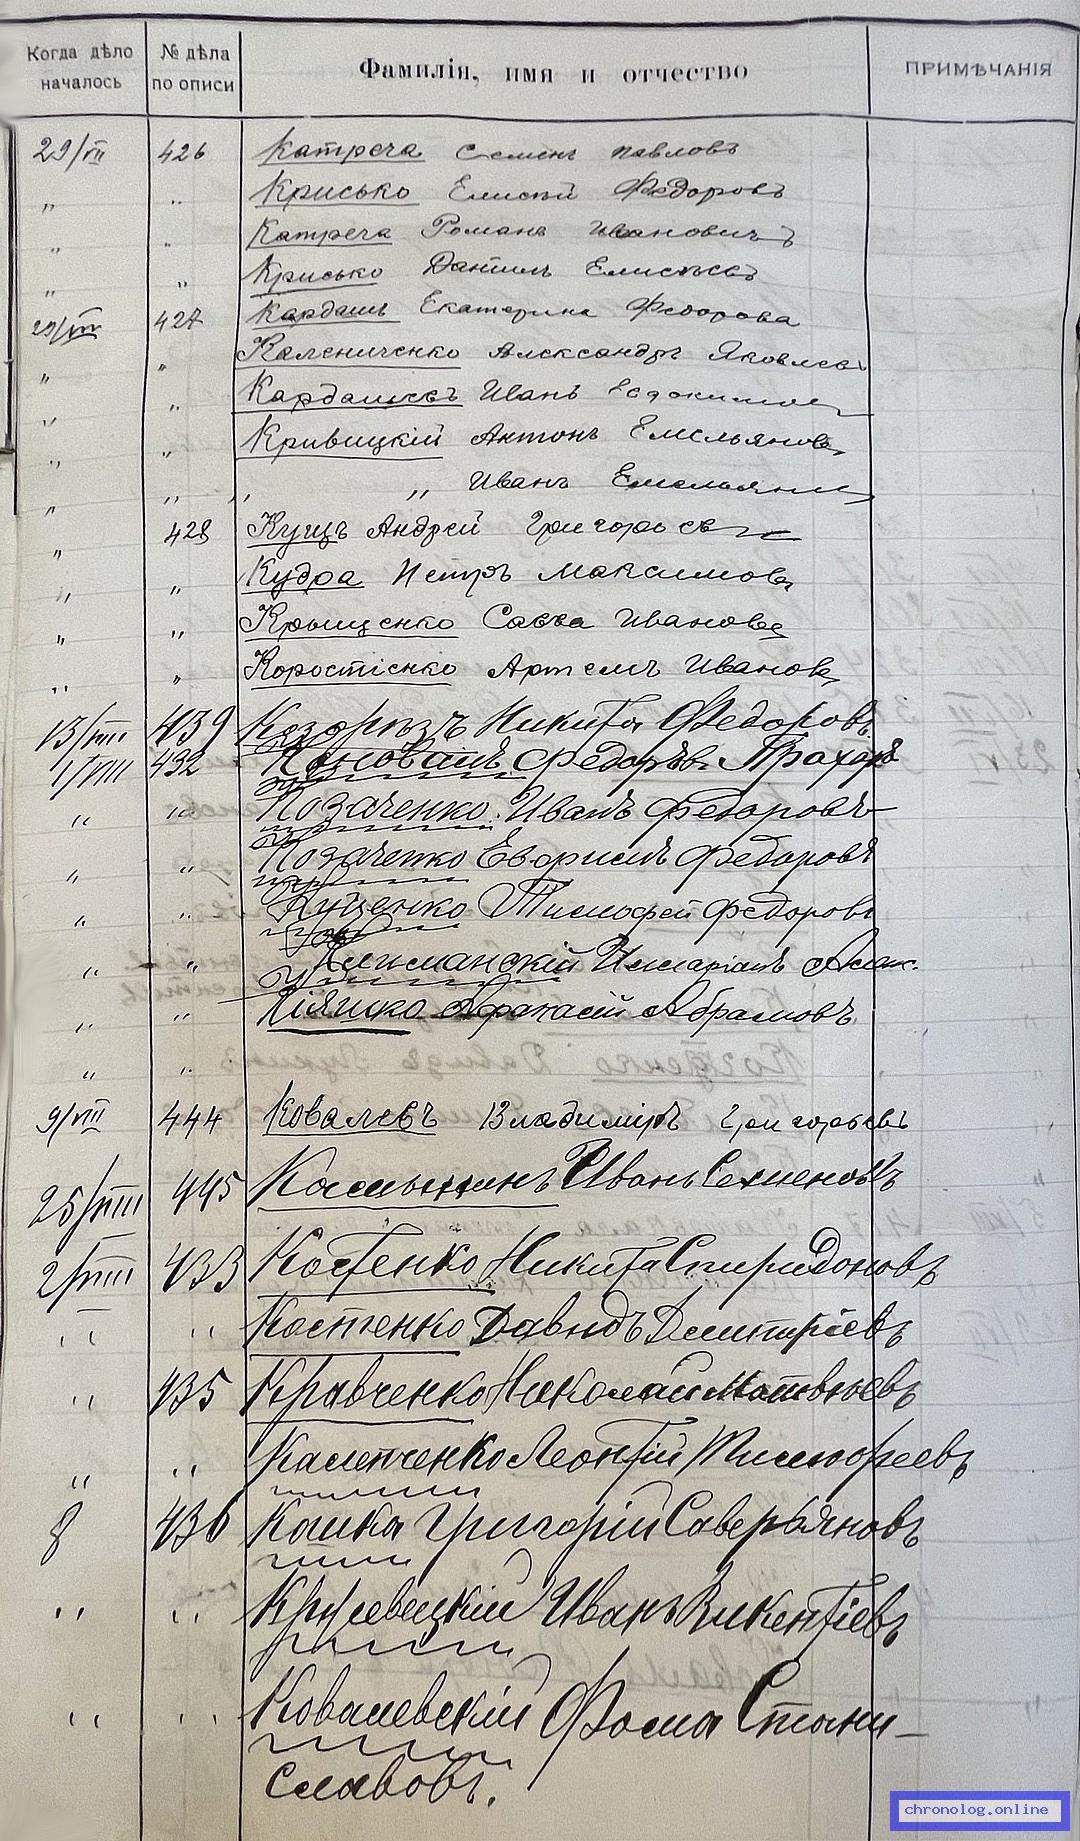 Когда дѣло началось № дѣла по описи Фамилія, имя и отчество ПРИМѢЧАНІЯ
29/VII 426 Катреча Семенъ Павловъ
„ „ Крисько Елисей Федоровъ
„ „ Катреча Романъ Ивановичъ
„ „ Крисько Даніилъ Елисѣевъ
29/VII 427 Кардашъ Екатерина Федорова
„ „ Калениченко Александръ Яковлевъ
„ „ Кардашевъ Иванъ Евдокимов
„ „ Кривицкій Антонъ Емельяновъ
„ „ „ „ Иванъ Емельянов
„ 428 Кущъ Андрей Григорьев
„ „ Кудра Петръ Максимовъ
„ „ Крыщенко Савва Ивановъ
„ „ Коростіенко Артемъ Ивановъ
13/VIII 439 Никита Федоровъ
1/VIII 432 Коновалъ Федоръ Прохоръ
„ „ Козаченко Иванъ Федоровъ
„ „ Козаченко Ефримъ Федоровъ
„ „ Куценко Тимофей Федоровъ
„ „
„ „ Кіяшко Афанасій Абрамовъ
„ „
9/VIII 444 Ковалевъ Владиміръ Григорьевъ
25/VIII 445 Камышинъ Иванъ Семеновъ
2/VIII 433 Костенко Никита Спиридоновъ
„ „ Костенко Давидъ Дмитріевъ
„ 435 Кравченко Николай Матвѣевъ
„ „ Каленченко Леонтій Тимофеевъ
8 436 Кошка Григорій Саверьяновъ
„ „ Иванъ Викентіевъ
„ „ Ковалевскій Фома Стани-
славовъ.
chronolog.online